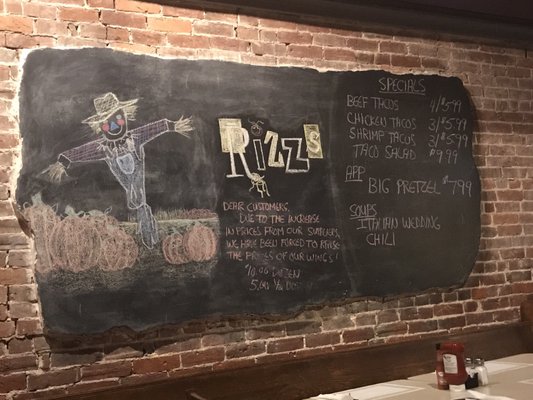 RIZZ'S
DEAR CUSTOMERS,
DUE TO THE INCREASE
IN PRICES FROM OUR SUPPLIERS,
WE HAVE BEEN FORCED TO RAISE
THE PRICES OF OUR WINGS!
10.00 DOZEN
5.00 1/2
SPECIALS
BEEF TACOS 4/$5.99
CHICKEN TACOS 3/$5.99
SHRIMP TACOS 3/$5.99
TACO SALAD $9.99
APP
BIG PRETZEL $7.99
SOUPS
ITALIAN WEDDING
CHILI